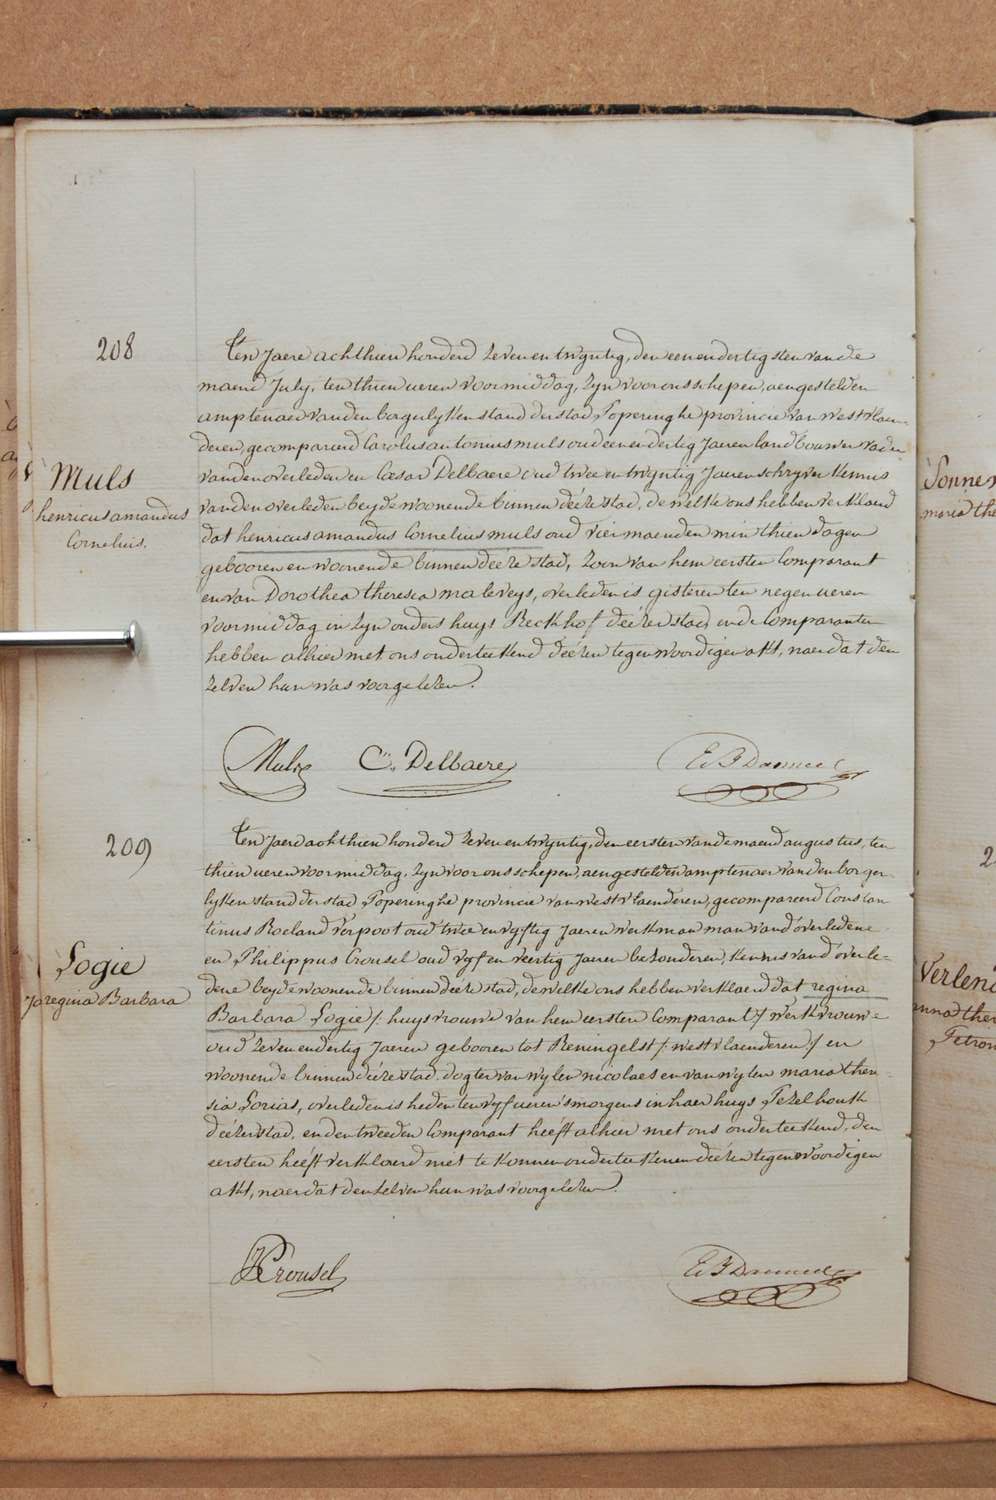 208
Ten Jaere achthien honderd zeven en twyntig, den een en dertigsten van de
maend July, ten thien ueren voormiddag, zyn voor ons schepen, aengestelden
amptenaer van den borgerlyken stand der stad Poperinghe provincie van westvlaen-
deren, gecompareerd Carolus antonius muls oud een en dertig Jaeren landbouwer vader
Muls
henricus amandus
Cornelius.
van den overleden en Cæsar Delbaere oud twee en twyntig Jaeren schryver kennis
van den overleden beyde woonende binnen deéze stad, de welke ons hebben verklaerd
dat henricus amandus Cornelius muls oud vier maenden min thien dagen
gebooren en woonende binnen deéze stad, zoon van hem eersten Comparant
en van Dorothea theresia maleveys, overleden is gisteren ten negen ueren
voormiddag in zyn ouders huys Reckhof deézer stad en de Comparanten
hebben alhier met ons onderteekend deézen tegenwoordigen akt, naer dat den
zelven hun was voorgelezen.
Muls C. Delbaere
209
Ten Jaere achthien honderd zeven en twyntig, den eersten van de maend augustus, ten
thien ueren voormiddag, zyn voor ons schepen, aengestelden amptenaer van den borger-
lyken stand der stad Poperinghe provincie van westvlaenderen, gecompareerd Constan
tinus Roeland Verpoot oud twee en vyftig Jaeren werkman man van d'overledene
Logie
regina Barbara
en Philippus Crousel oud vyf en veertig Jaeren bezonderen, kennis van d'overle-
dene beyde woonende binnen deéze stad, de welke ons hebben verklaerd dat regina
Barbara Logie /: huysvrouwe van hem eersten Comparant :/ werkvrouw-
oud zeven en dertig Jaeren gebooren tot Reningelst /: westvlaenderen :/ en
woonende binnen deéze stad, dogter van wylen nicolaes en van wylen maria there-
sia Lorias, overleden is heden ten vyf ueren 's morgens in haer huys Pezelhouk
deézer stad, en den tweeden Comparant heeft alhier met ons onderteekend, den
eersten heéft verklaerd niet te konnen onderteekenen deézen tegenwoordigen
akt, naer dat den zelven hun was voorgelezen.
Crousel
Verleni